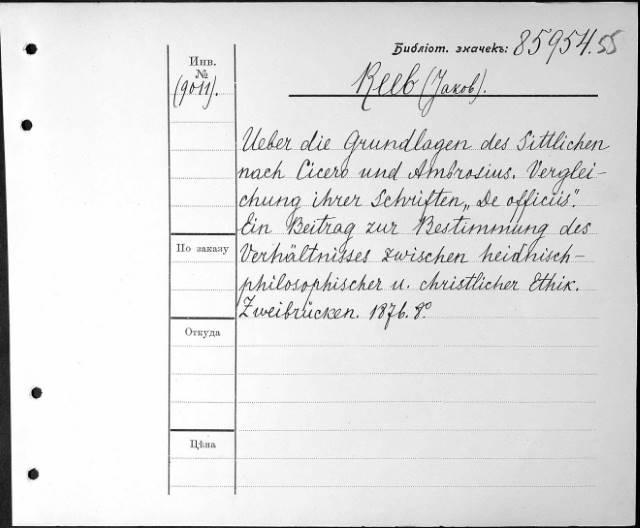 Библіот. значекъ: 85954.55
Инв.
№
(9011).
Reeb (Jакоb).
Ueber die Grundlagen des Sittlichen
nach Cicero und Ambrosius. Verglei-
chung ihrer Schriften „De officiis".
Ein Beitrag zur Bestimmung des
По заказу
Verhältnisses zwischen heidnisch-
philosophischer u. christlicher Ethik.
Zweibrücken. 1876. 8º.
Откуда
Цѣна